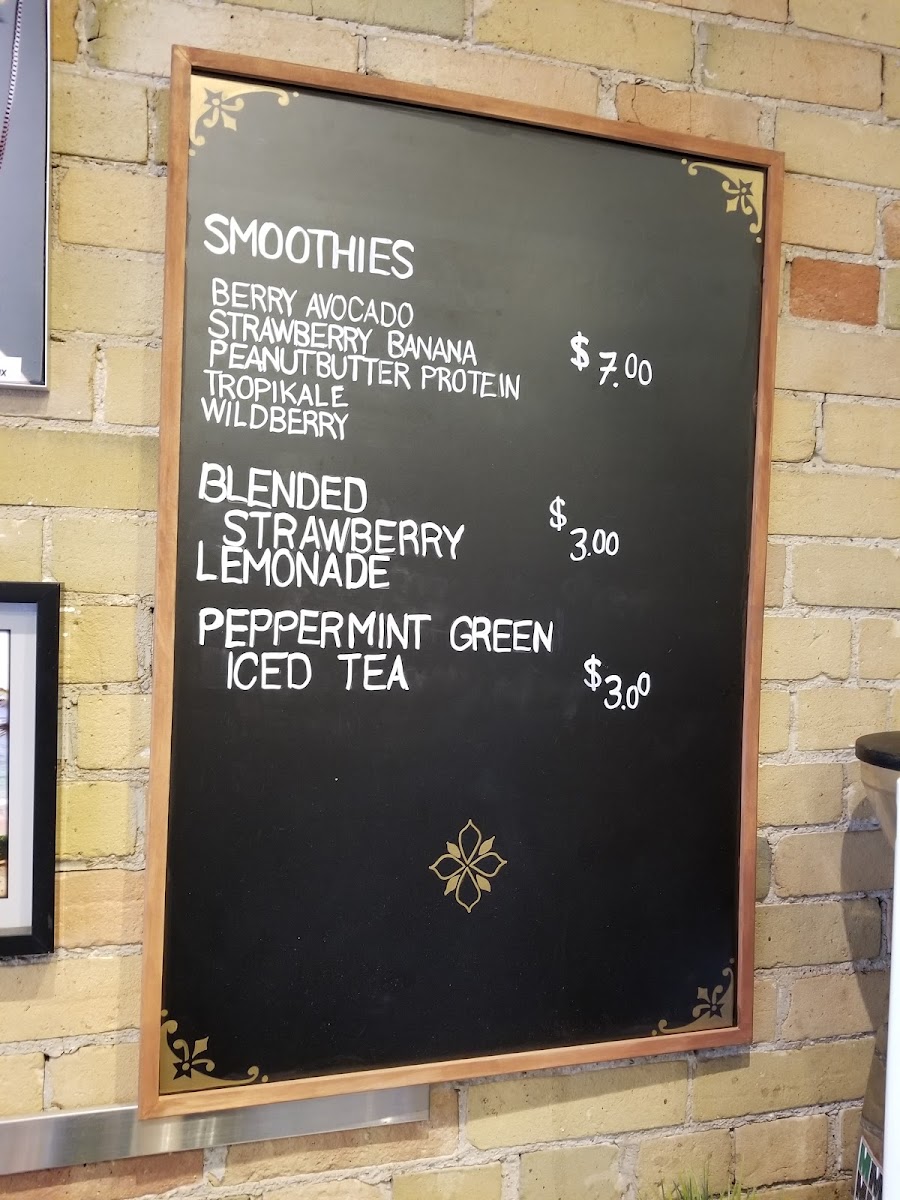 SMOOTHIES
BERRY AVOCADO
STRAWBERRY BANANA
PEANUTBUTTER PROTEIN
TROPIKALE
WILDBERRY
$7.00
BLENDED
STRAWBERRY
LEMONADE
$3.00
PEPPERMINT GREEN
ICED TEA
$3.00